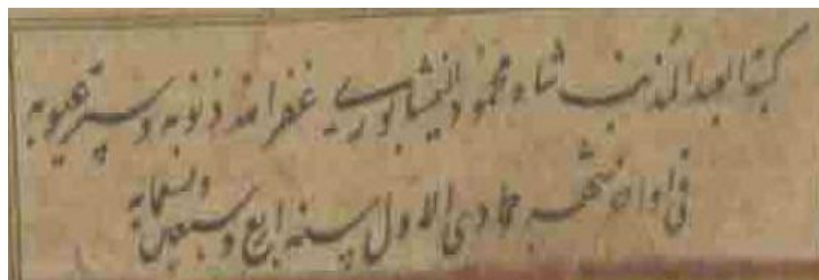 كتبه العبد المذنب شاه محمود النيشابوري غفر الله ذنوبه وستر عيوبه
في شهر جمادى الاول سنه اربع وسبعين وتسعمايه